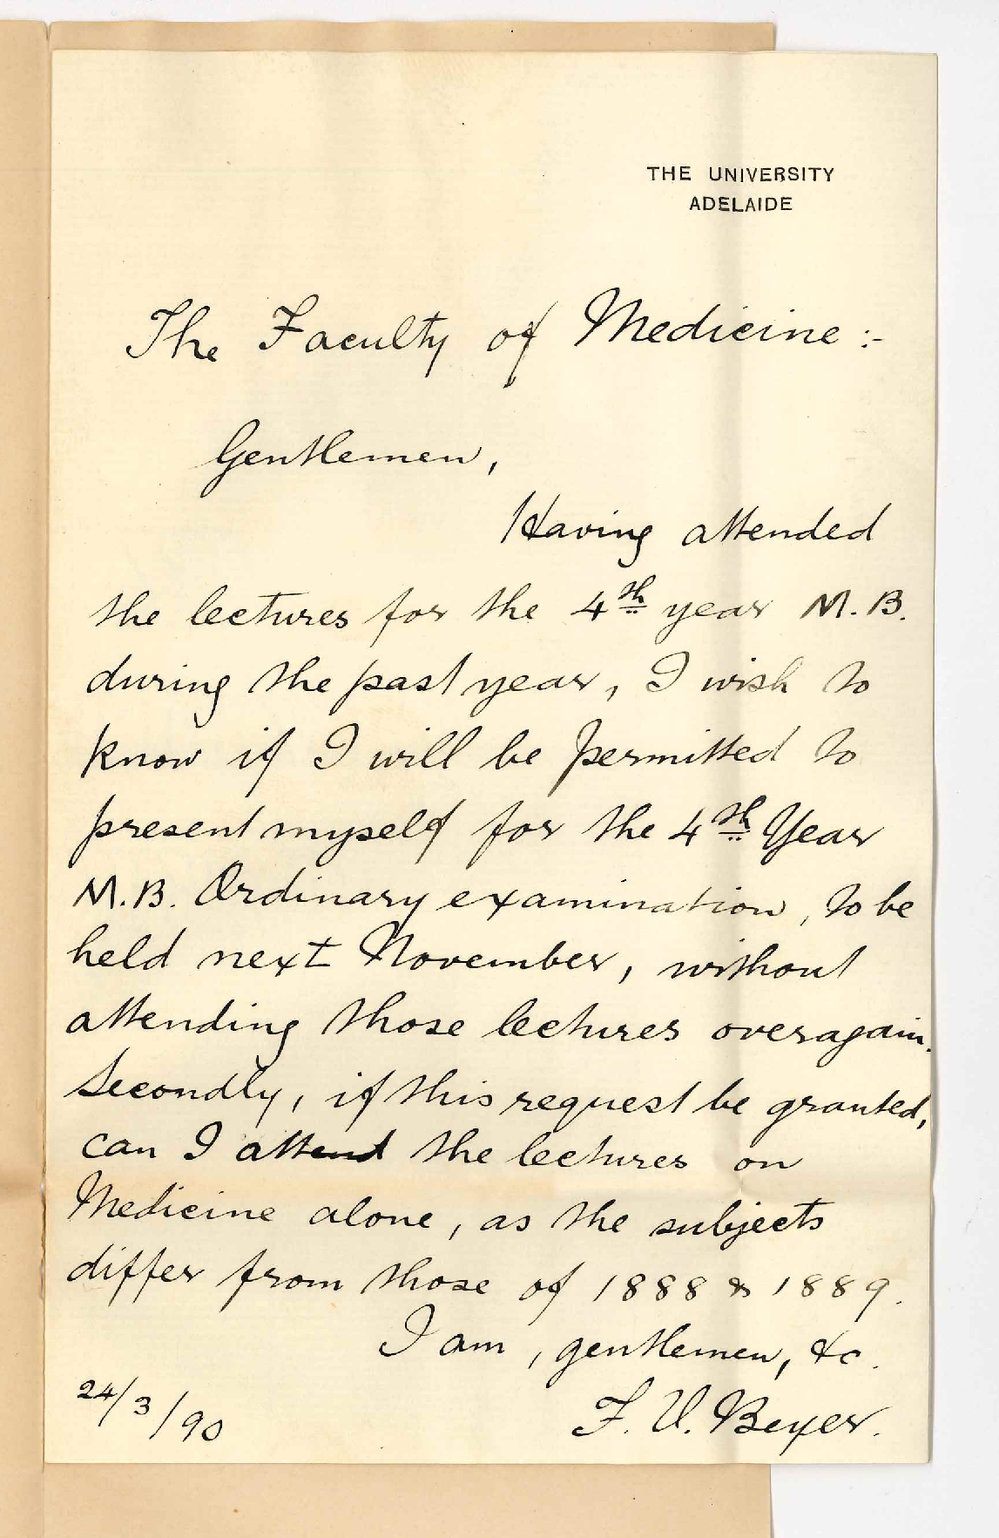 THE UNIVERSITY
ADELAIDE
The Faculty of Medicine :-
Gentlemen,
Having attended
the lectures for the 4th year M.B.
during the past year, I wish to
know if I will be permitted to
present myself for the 4th Year
M.B. Ordinary examination, to be
held next November, without
attending those lectures over again.
Secondly, if this request be granted,
can I attend the lectures on
Medicine alone, as the subjects
differ from those of 1888 & 1889.
I am, gentlemen, &c.
24/3/90
F. U. Beyer.